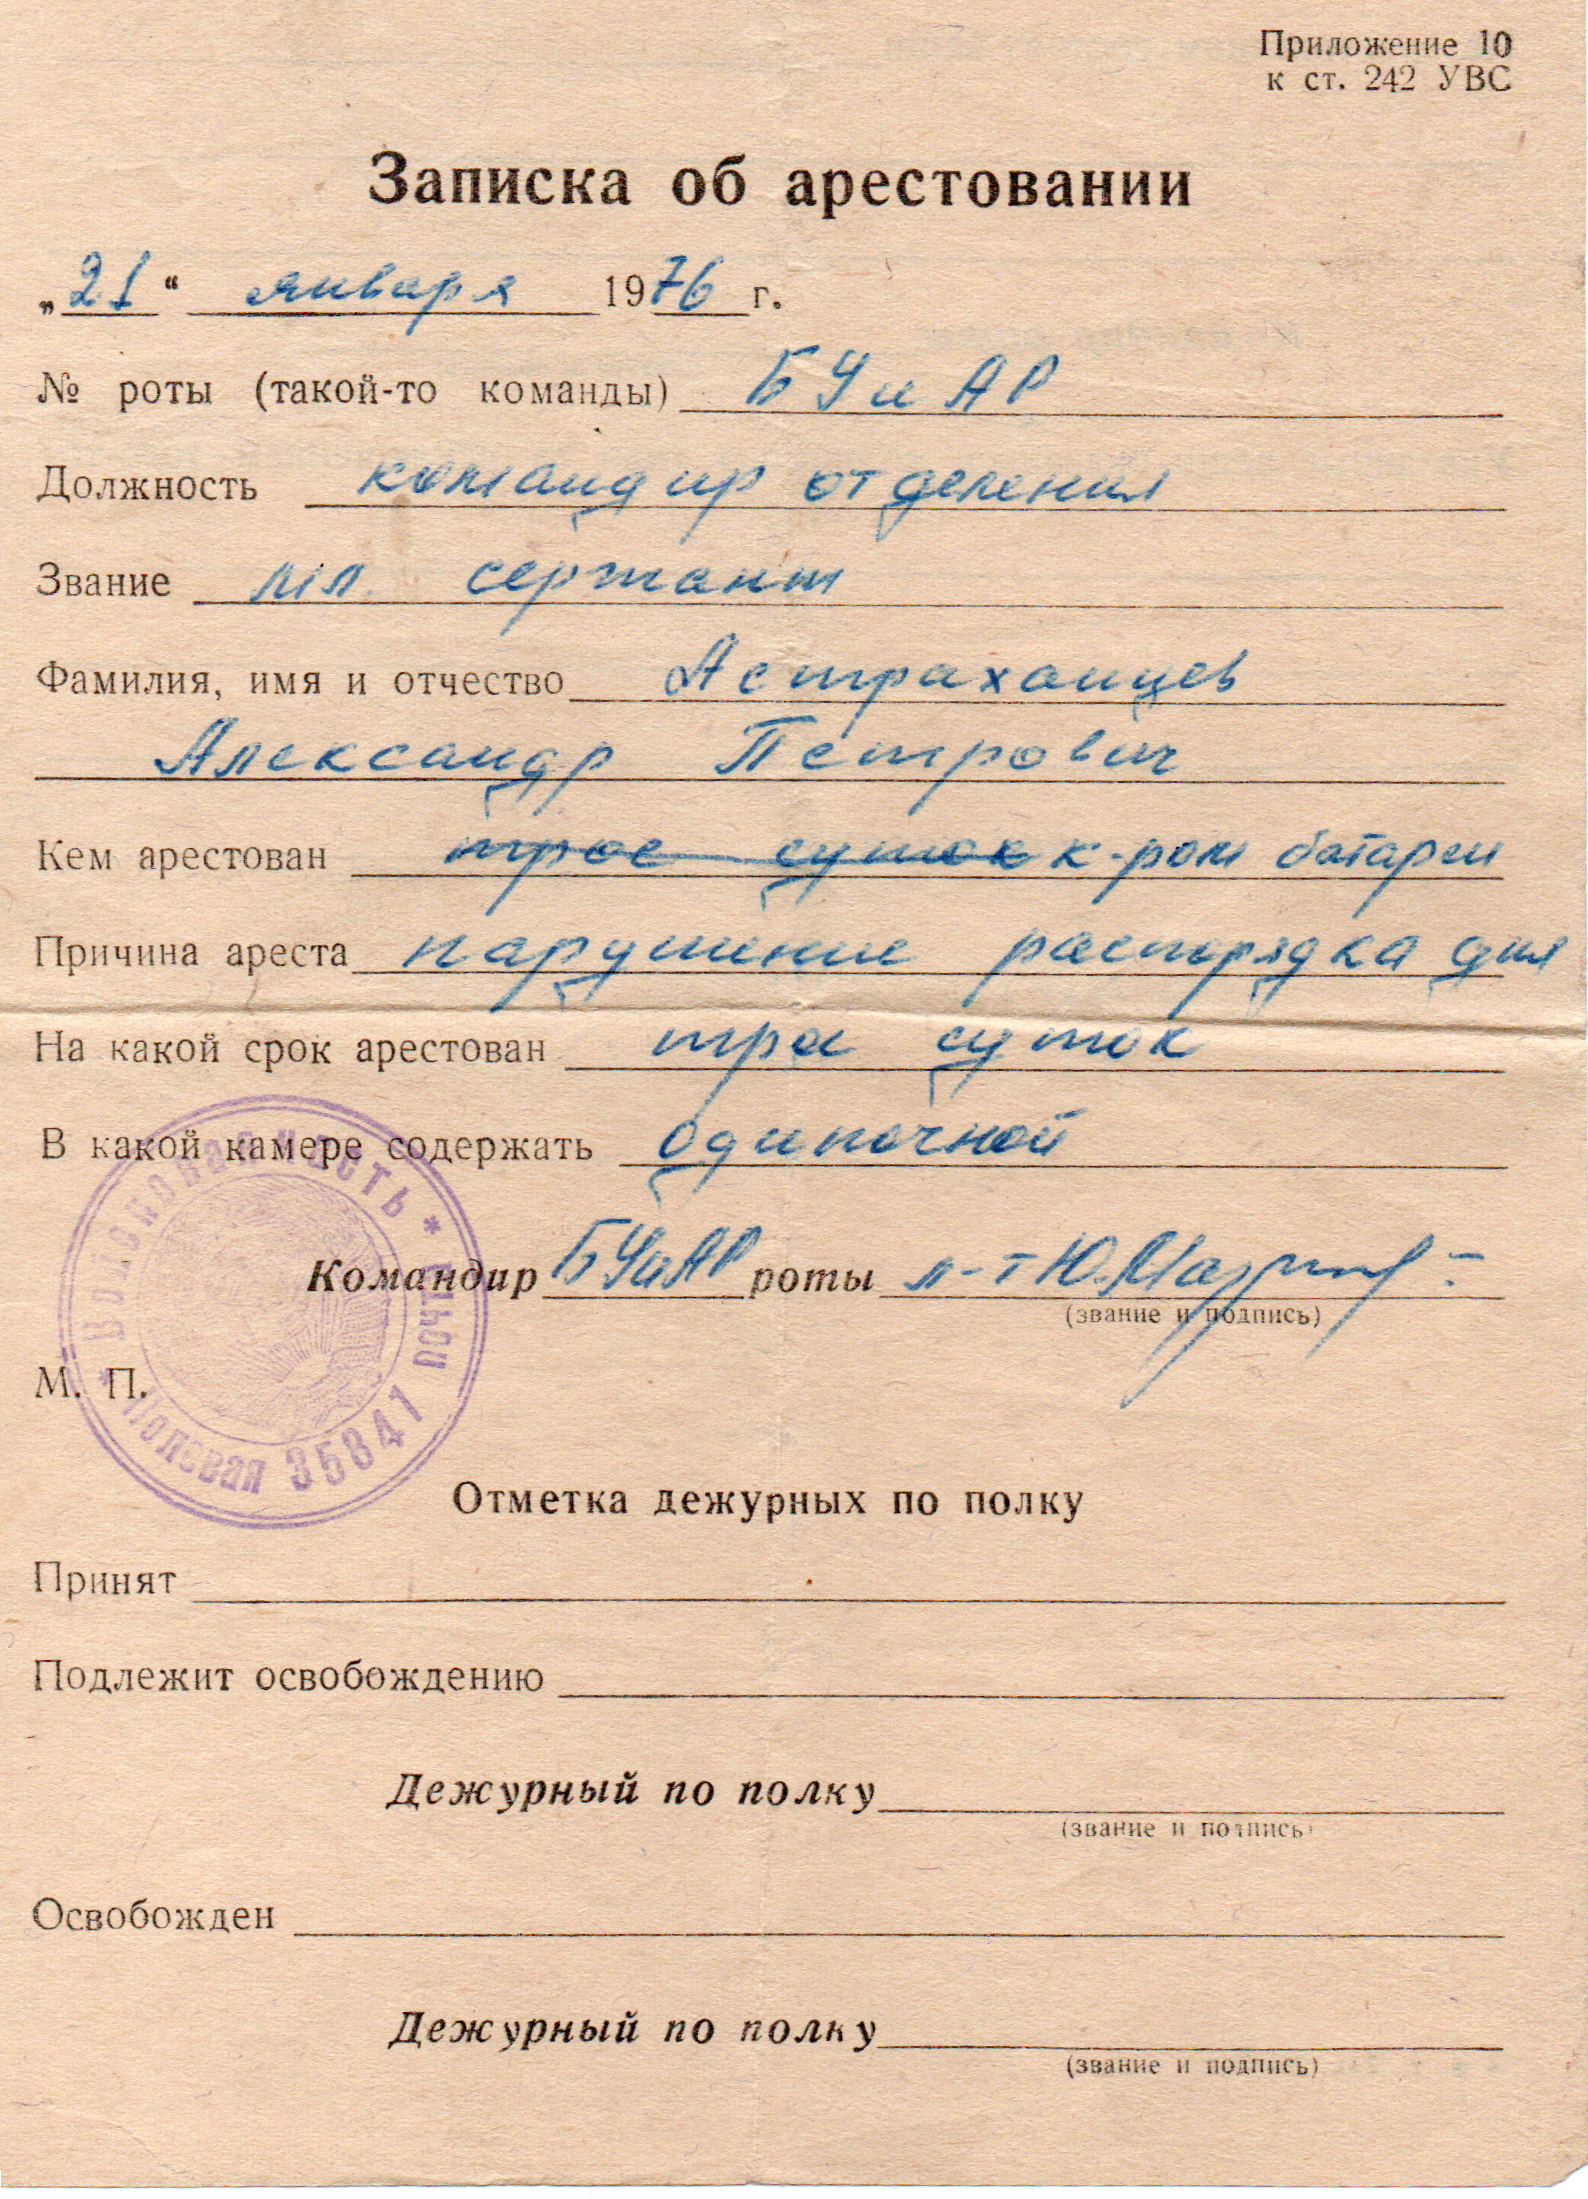 Приложение 10
к ст. 242 УВС
Записка об арестовании
„21“ января 1976 г.
№ роты (такой-то команды) БУиАР
Должность командир отделения
Звание мл. сержант
Фамилия, имя и отчество Астраханцев
Александр Петрович
Кем арестован трое суток к-ром батареи
Причина ареста нарушение распорядка дня
На какой срок арестован трое суток
В какой камере содержать одиночной
Командир БУиАР роты л-т Ю.
(звание и подпись)
М. П.
Войсковая часть * Полевая почта 35841 *
Отметка дежурных по полку
Принят
Подлежит освобождению
Дежурный по полку
(звание и подпись)
Освобожден
Дежурный по полку
(звание и подпись)